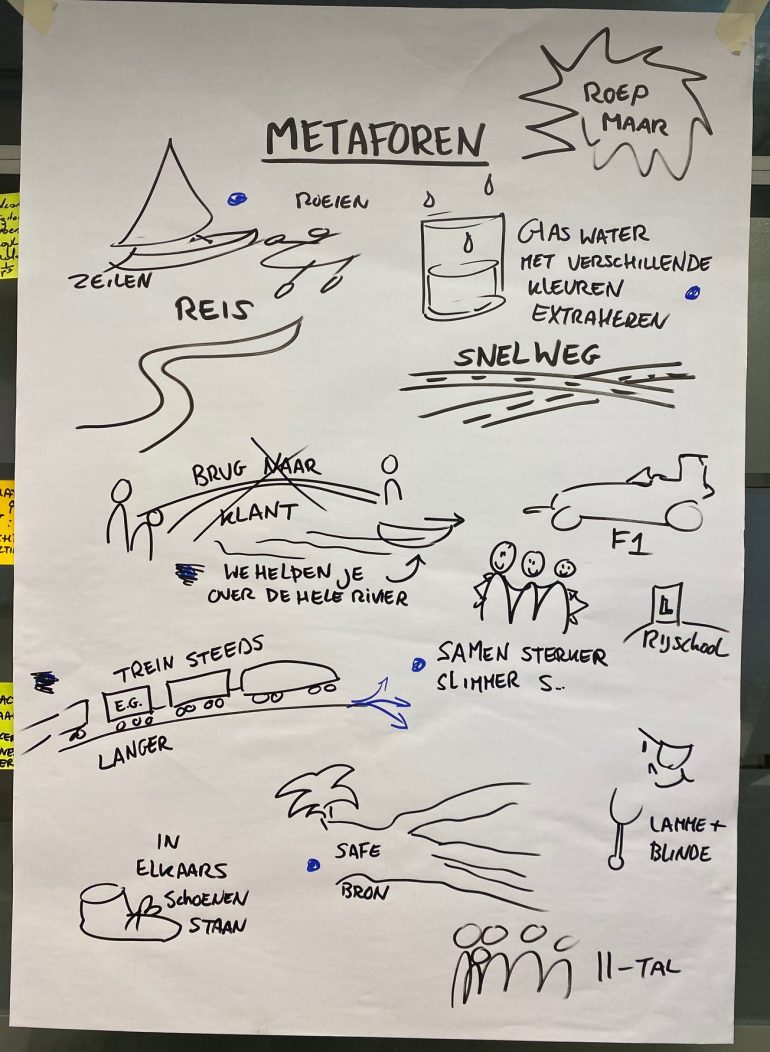 ROEP
MAAR
METAFOREN
ROEIEN
ZEILEN
GLAS WATER
MET VERSCHILLENDE
KLEUREN
EXTRAHEREN
REIS
SNELWEG
BRUG NAAR
KLANT
WE HELPEN JE
OVER DE HELE RIVIER
F1
L
RIJSCHOOL
SAMEN STERKER
SLIMMER S...
TREIN STEEDS
E.G.
LANGER
LAMME +
BLINDE
SAFE
BRON
IN
ELKAARS
SCHOENEN
STAAN
11-TAL